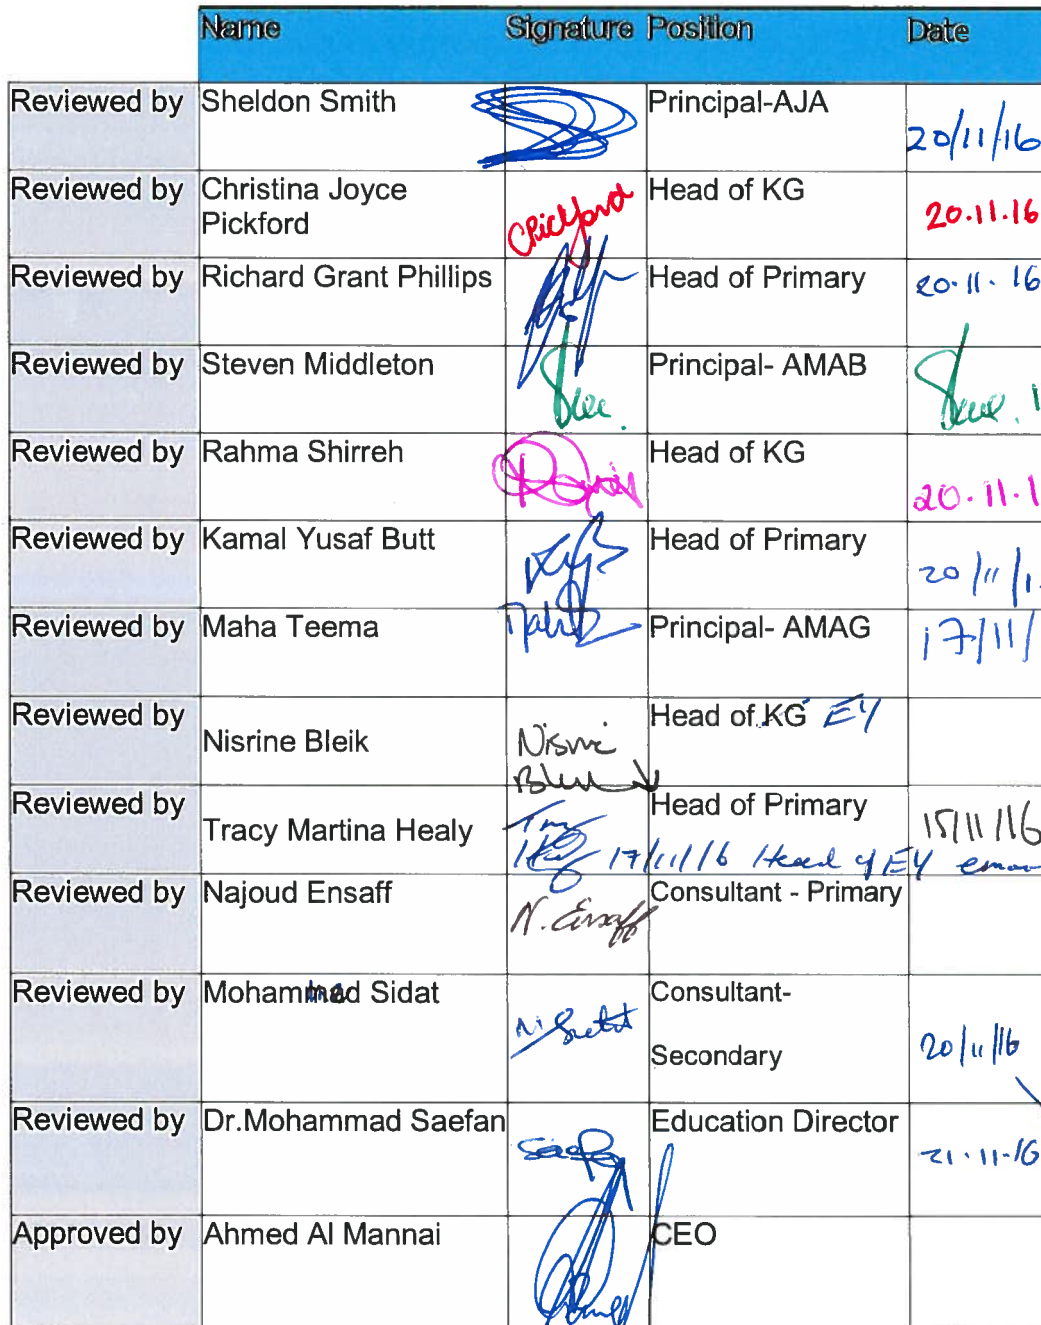 Name Signature Position Date
Reviewed by Sheldon Smith Principal-AJA 20/11/16
Reviewed by Christina Joyce Pickford CPickford Head of KG 20.11.16
Reviewed by Richard Grant Phillips Head of Primary 20.11.16
Reviewed by Steven Middleton Principal- AMAB
Reviewed by Rahma Shirreh Head of KG 20.11.1
Reviewed by Kamal Yusaf Butt Head of Primary 20/11/1
Reviewed by Maha Teema Principal- AMAG 17/11/
Reviewed by Nisrine Bleik Head of KG EY
Reviewed by Tracy Martina Healy Head of Primary 15/11/16
17/11/16 Head of EY
Reviewed by Najoud Ensaff N. Ensaff Consultant - Primary
Reviewed by Mohammad Sidat Consultant-
Secondary 20/11/16
Reviewed by Dr.Mohammad Saefan Education Director 21.11.16
Approved by Ahmed Al Mannai CEO